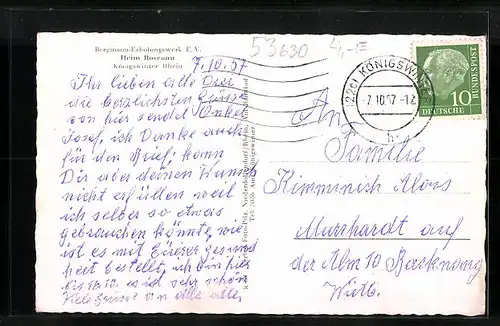 Bergmann-Erholungswerk E. V.
Heim Rosenau
Königswinter Rhein
7.10.57
53630
4,-
Ihr lieben alle Drei
die herzlichsten Grüsse
von hier sendet Onkel
Josef, ich Danke auch
für den Brief; kann
Dir aber deinen Wunsch
nicht erfüllen weil
ich selber so etwas
gebrauchen könnte, wie
ist es mit Eurer gesund
heit bestellt, ich bin hier
bis es ist sehr schön
viele Grüsse an alle
(22c) KÖNIGSWINTER
-7.10.57.-12
h
10
DEUTSCHE BUNDESPOST
An
Familie
Kimminich Alois
Murrhardt auf
der Alm 10 Backnang
Wttb.